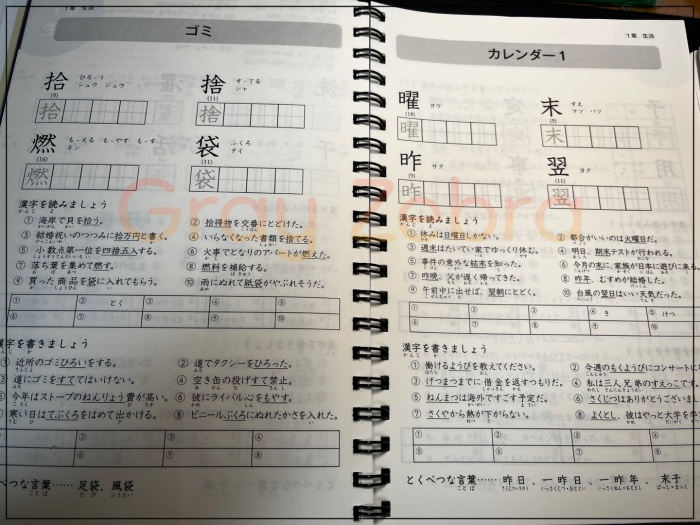 1章 生活
ゴミ
拾 ひろ-う シュウ ジュウ
(9)
拾
捨 す-てる シャ
(11)
捨
燃 も-える も-やす も-す ネン
(16)
燃
袋 ふくろ タイ
(11)
袋
漢字を読みましょう
① 海岸で貝を拾う。
② 拾得物を交番にとどけた。
③ 結婚祝いのつつみに拾万円と書く。
④ いらなくなった書類を捨てる。
⑤ 小数点第一位を四捨五入する。
⑥ 火事でとなりのアパートが燃えた。
⑦ 落ち葉を集めて燃す。
⑧ 燃料を補給する。
⑨ 買った商品を袋に入れてもらう。
⑩ 雨にぬれて紙袋がやぶれそうだ。
① ② とく ③ ④ ⑤
⑥ ⑦ ⑧ ⑨ ⑩
漢字を書きましょう
① 近所のゴミひろいをする。
② 道でタクシーをひろった。
③ 道にゴミをすててはいけない。
④ 空き缶の投げすて禁止。
⑤ 今年はストーブのねんりょう費が高い。
⑥ 彼にライバル心をもやす。
⑦ 寒い日はてぶくろをはめて出かける。
⑧ ビニールぶくろにぬれたかさを入れた。
② ③ ④
⑥ ⑦ ⑧
くべつな言葉…… 足袋、風袋
たび ふうたい
1章 生活
カレンダー1
曜 ヨウ
(18)
曜
末 すえ マツ バツ
(5)
末
昨 サク
(9)
昨
翌 ヨク
(11)
翌
漢字を読みましょう
① 休みは日曜日しかない。
② 都合がいいのは火曜日だ。
③ 週末はたいてい家でゆっくり休む。
④ 明日、期末テストが行われる。
⑤ 事件の意外な結末を知った。
⑥ 今月の末に、家族が日本に遊びに来る。
⑦ 昨晩、父が遅く帰ってきた。
⑧ 昨年、むすめが結婚した。
⑨ 午前中に出せば、翌朝にとどく。
⑩ 台風の翌日はいい天気だった。
① ② ③ ④ き ⑤ けつ
⑥ ⑦ ⑧ ⑨ ⑩
漢字を書きましょう
① 働けるようびを教えてください。
② 今週のもくようびにコンサートに
③ げつまつまでに借金を返すつもりだ。
④ 私は三人兄弟のすえっこです
⑤ ねんまつは海外ですごす予定だ。
⑥ さくじつはありがとうございま
⑦ さくやから熱が下がらない。
⑧ よくとし、彼はやっと大学を卒
① ② ③ ④
⑤ ⑥ ⑦ ⑧
とくべつな言葉…… 昨日、一昨日、一昨年、末子
Gray Zebra